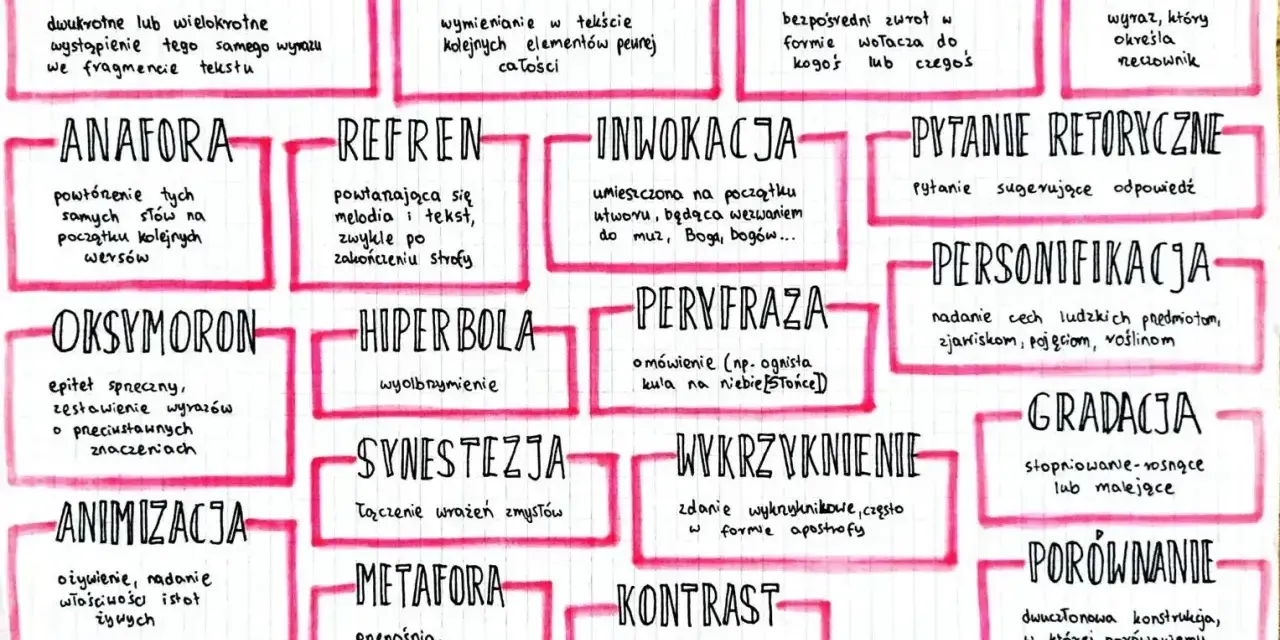 dwukrotne lub wielokrotne
wystąpienie tego samego wyrazu
we fragmencie tekstu
wymienianie w tekście
kolejnych elementów pewnej
całości
bezpośredni zwrot w
formie wołacza do
kogoś lub czegoś
wyraz, który
określa
rzeczownik
ANAFORA
powtórzenie tych
samych słów na
początku kolejnych
wersów
REFREN
powtarzająca się
melodia i tekst,
zwykle po
zakończeniu strofy
INWOKACJA
umieszczona na początku
utworu, będąca wezwaniem
do muz, Boga, bogów...
PYTANIE RETORYCZNE
pytanie sugerujące odpowiedź
PERSONIFIKACJA
nadanie cech ludzkich przedmiotom,
zjawiskom, pojęciom, roślinom
OKSYMORON
epitet sprzeczny,
zestawienie wyrazów
o przeciwstawnych
znaczeniach
HIPERBOLA
wyolbrzymienie
PERYFRAZA
omówienie (np. ognista
kula na niebie[Słońce])
GRADACJA
stopniowanie-rosnące
lub malejące
SYNESTEZJA
łączenie wrażeń zmysłów
WYKRZYKNIENIE
zdanie wykrzyknikowe, często
w formie apostrofy
ANIMIZACJA
ożywienie, nadanie
właściwości istot
żywych
METAFORA
przenośnia,
KONTRAST
PORÓWNANIE
dwuczłonowa konstrukcja,
w której porównujemy